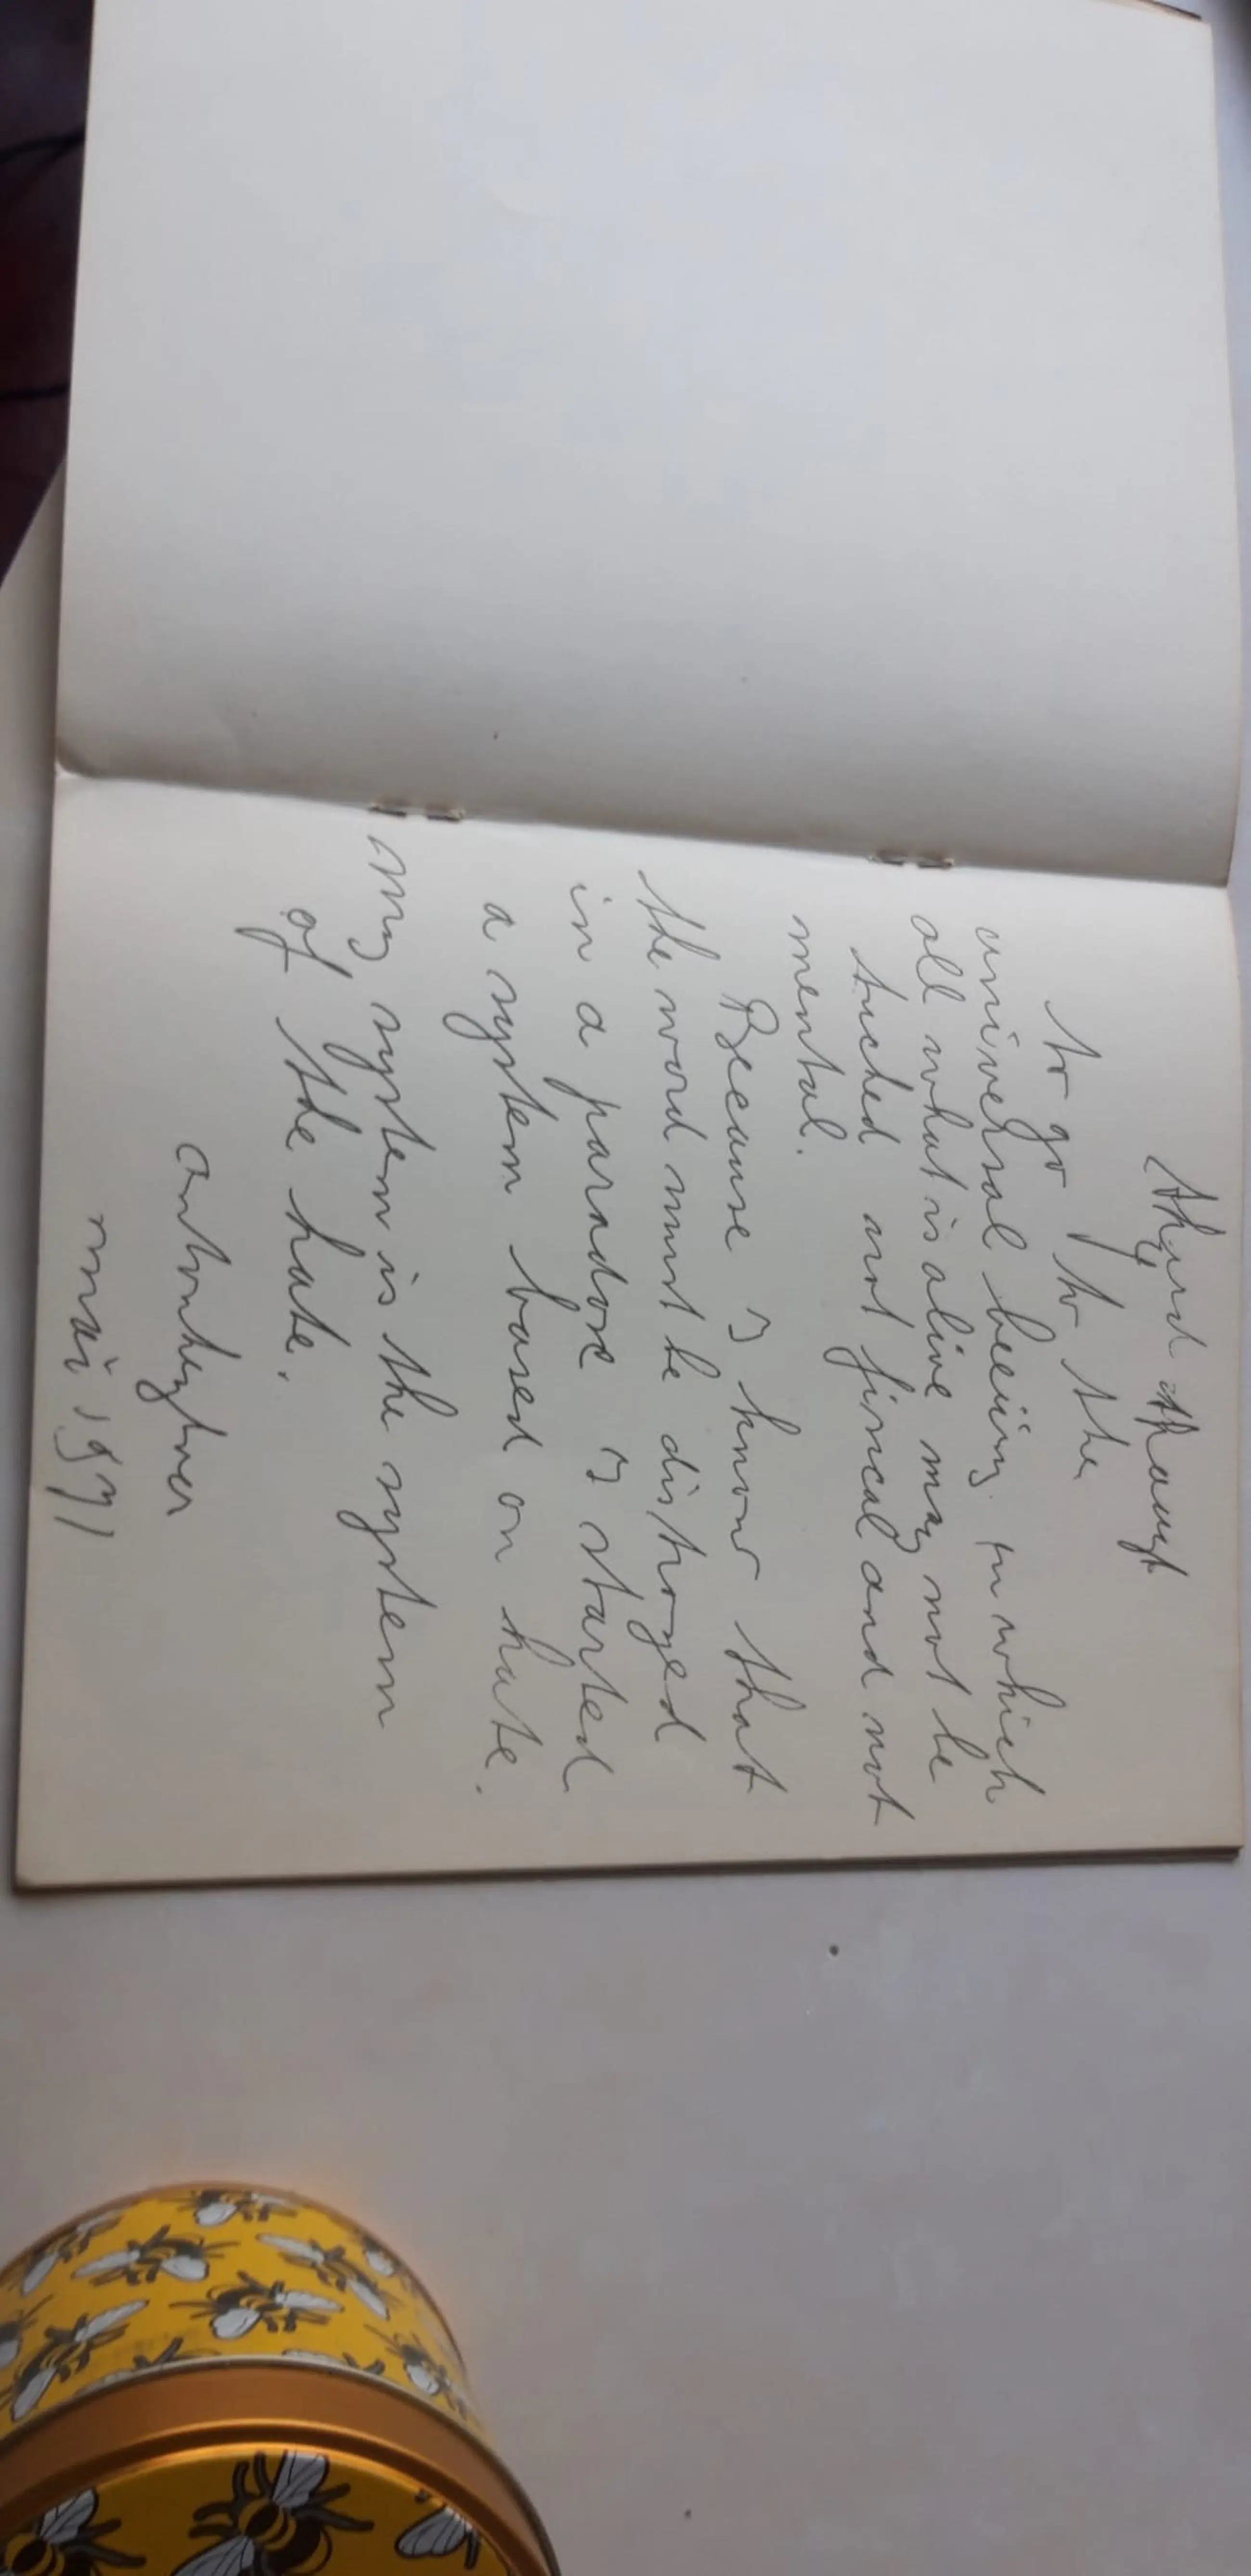 to go to the
universal beeiing in which
all what is alive may not be
tuched not fisical and not
mental.
Because I know that
the word must be distroyed
in a paradox I started
a system based on hate.
my system is the system
of the hate.
mai 1971